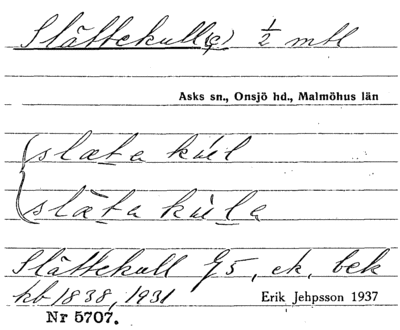 Slättekull(e) ½ mtl
Asks sn., Onsjö hd., Malmöhus län
slæta kúl
slæta kúla
Slättekull G5, ek, bek
kb 1838, 1931
Erik Jehpsson 1937
Nr 5707.